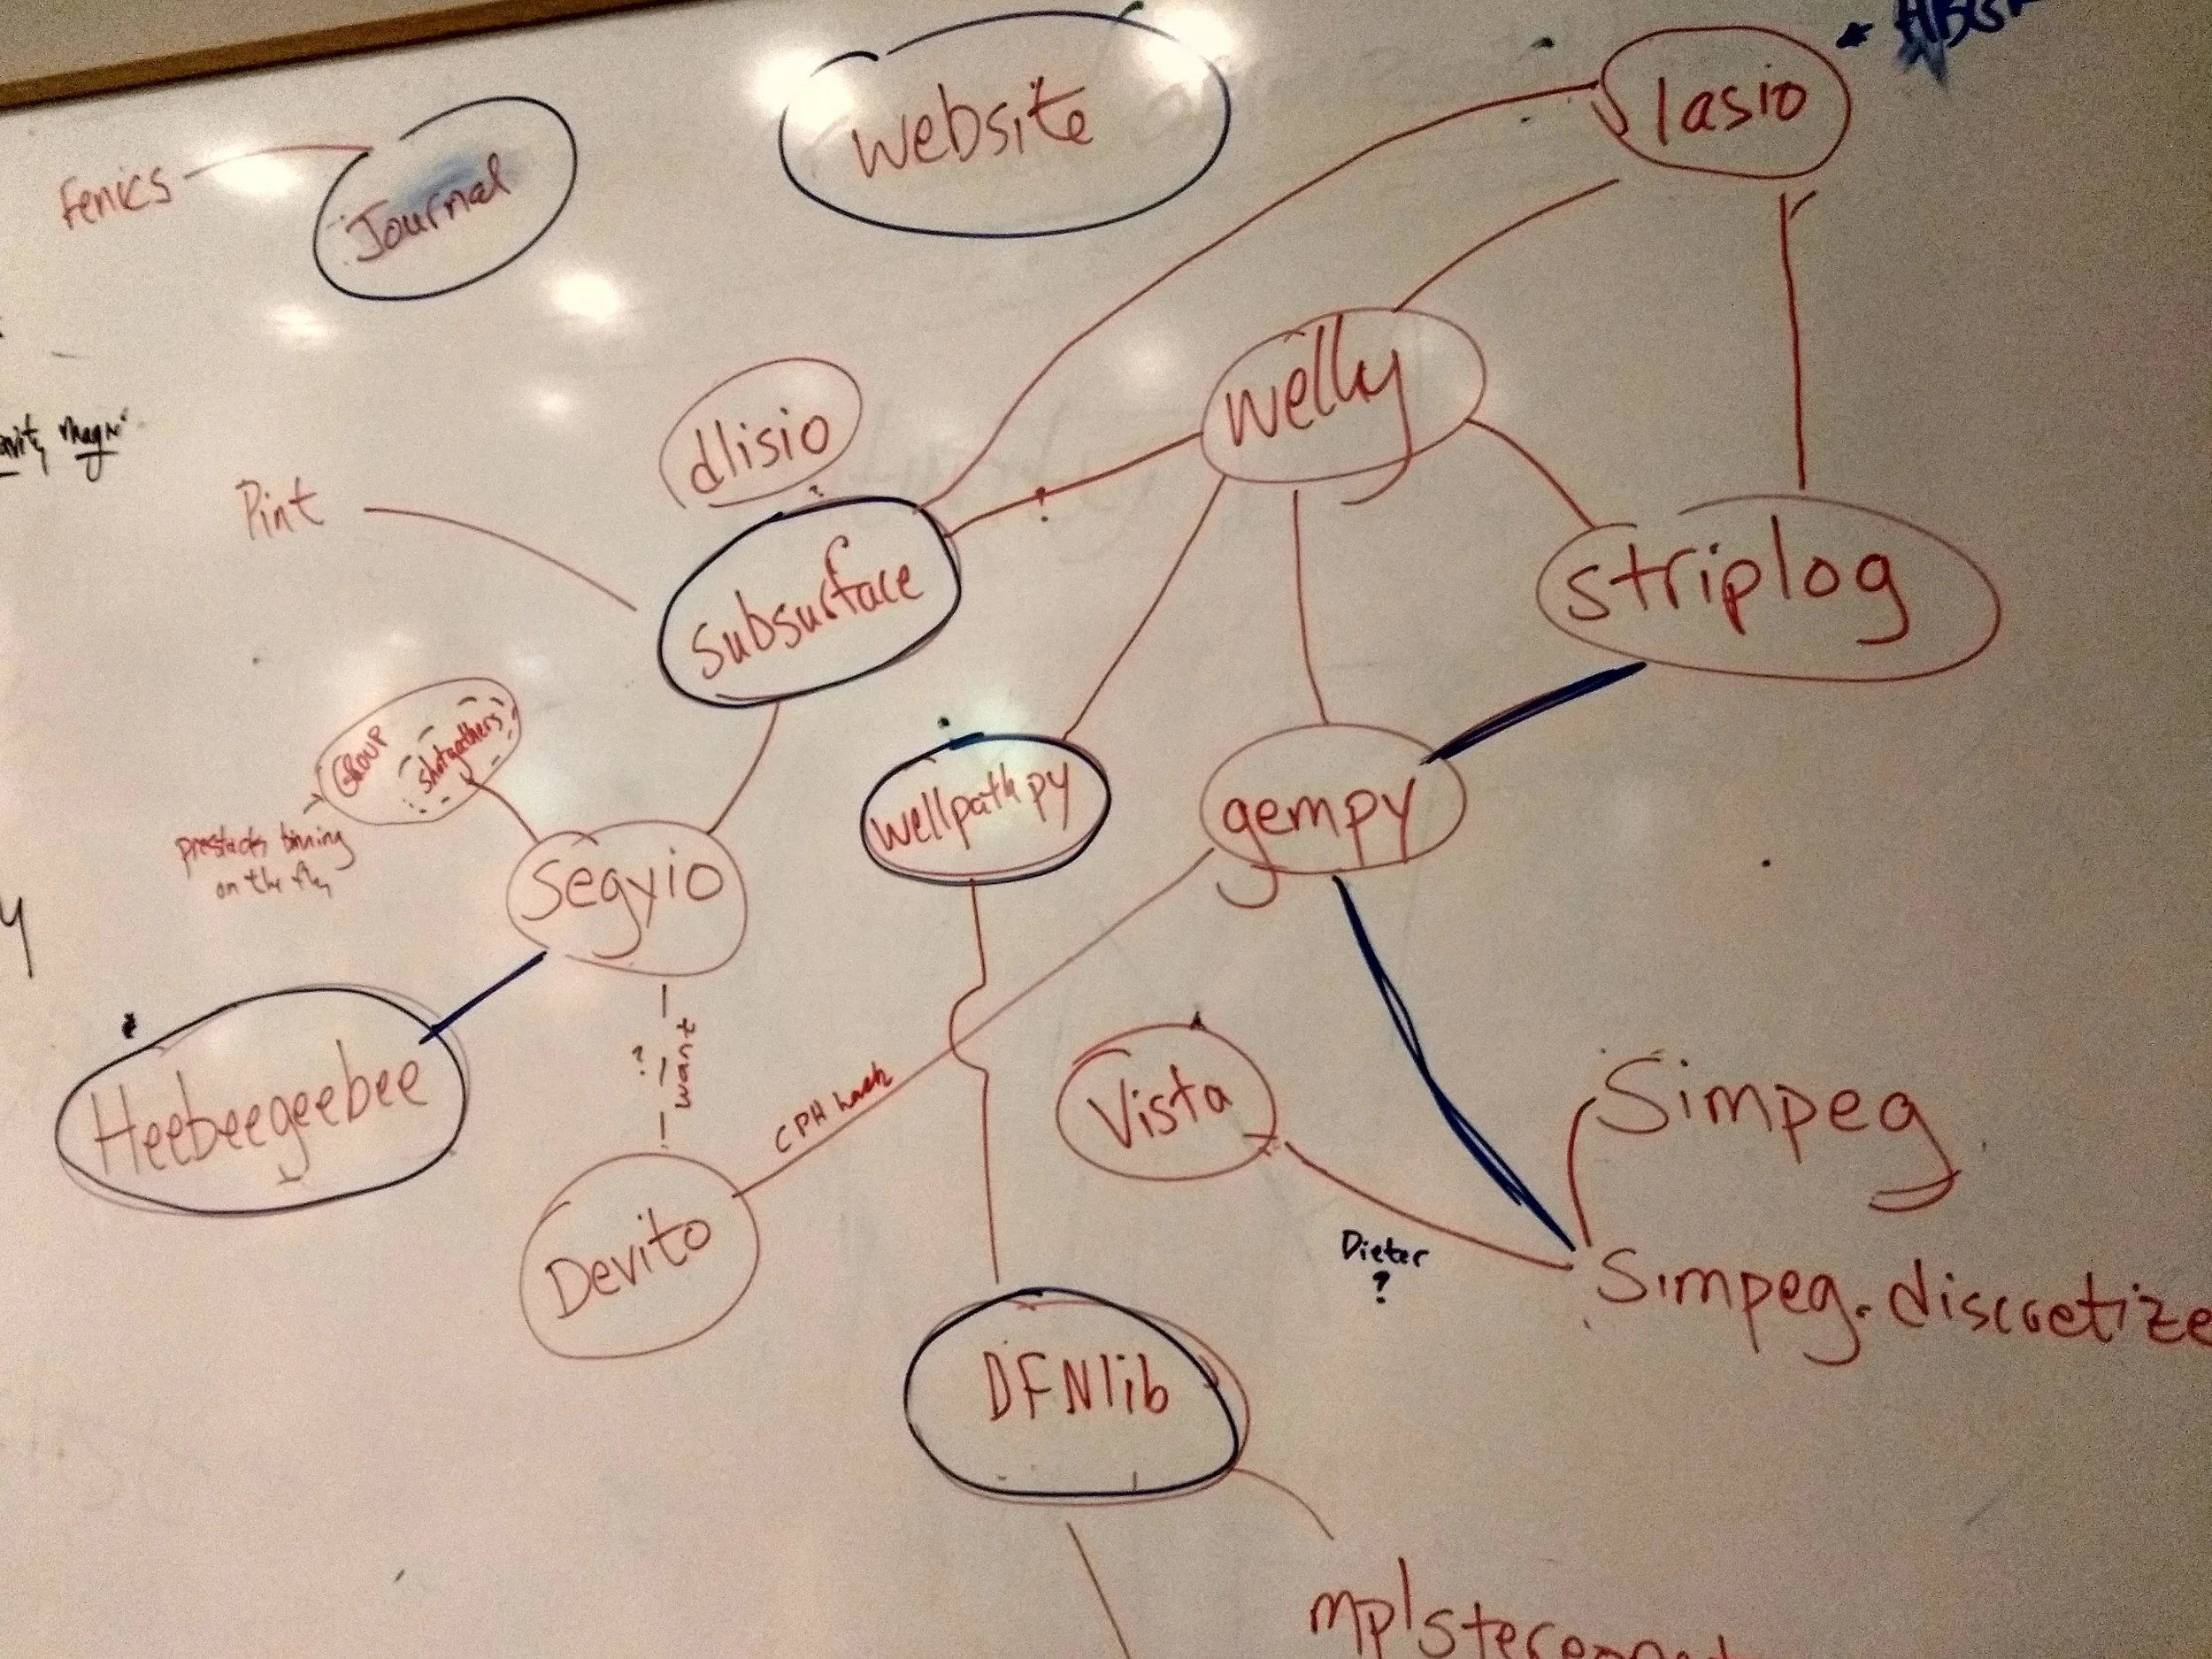 website
lasio
fenics
Journal
welly
dlisio
?
Pint
?
subsurface
striplog
GROUP
shotgathers
prestacks binning
on the fly
segyio
wellpathpy
gempy
Heebeegeebee
?
want
CPH hack
Vista
Simpeg
Devito
Dieter
?
Simpeg.discretize
DFNlib